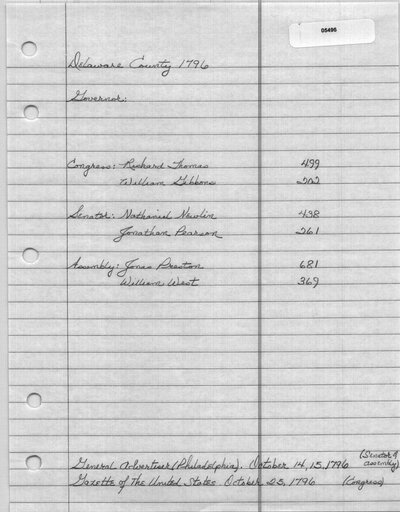 05496
Delaware County 1796
Governor:
Congress: Richard Thomas 499
William Gibbons 202
Senator: Nathaniel Newlin 438
Jonathan Pearson 261
Assembly: Jonas Preston 681
William West 369
General Advertiser (Philadelphia). October 14, 15, 1796 (Senator & assembly)
Gazette of The United States. October 23, 1796 (Congress)